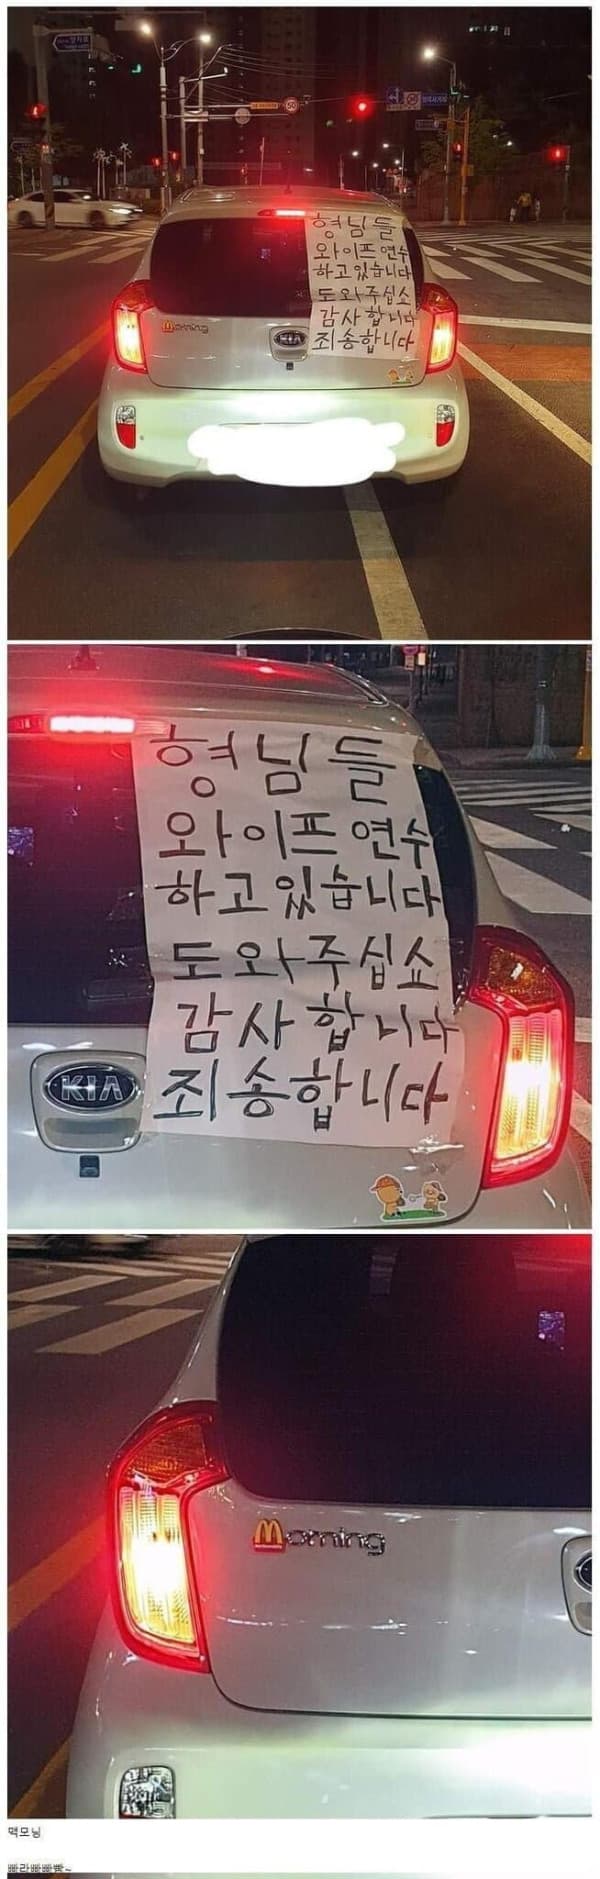 50
형님들
와이프 연수
하고있습니다
도와주십쇼
감사합니다
죄송합니다
Morning
KIA
형님들
와이프 연수
하고있습니다
도와주십쇼
감사합니다
죄송합니다
KIA
Morning
맥모닝
빠라빠빠빵~